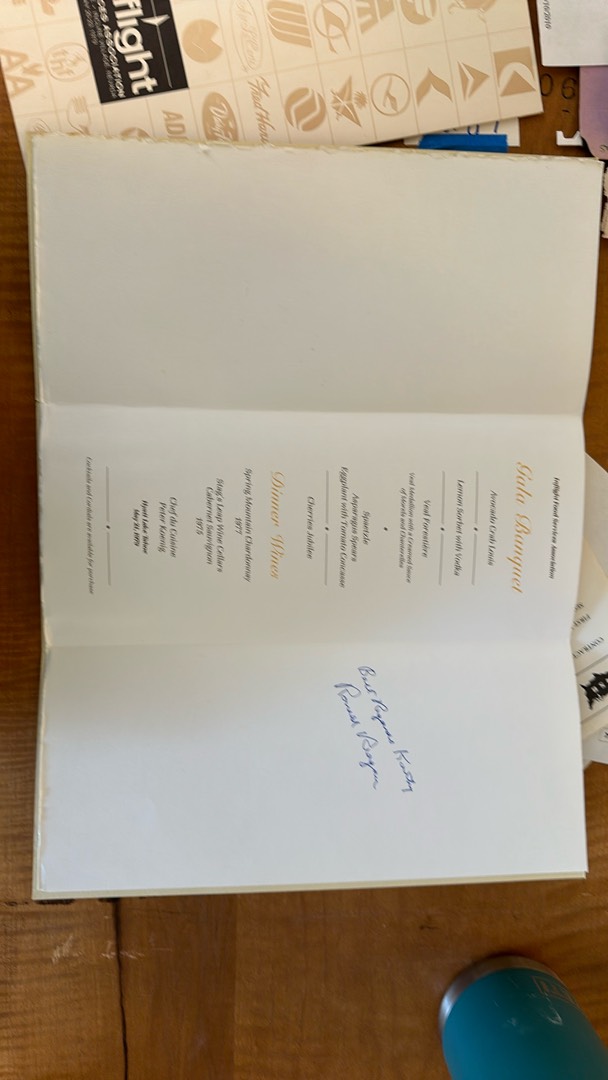 Inflight Food Services Association
Gala Banquet
Avocado Crab Louis
Lemon Sorbet with Vodka
Veal Forestière
Veal Medallion with a Creamed Sauce
of Morels and Chanterelles
Spaetzle
Asparagus Spears
Eggplant with Tomato Concasse
Cherries Jubilee
Dinner Wines
Spring Mountain Chardonnay
1977
Stag's Leap Wine Cellars
Cabernet Sauvignon
1975
Chef du Cuisine
Peter Koenig
Hyatt Lake Tahoe
May 21, 1979
Cocktails and Cordials are available for purchase
Best Regards Kathy
Ronald Reagan
flight
ASSOCIATION
AA
CONTRACT
FIRST
06